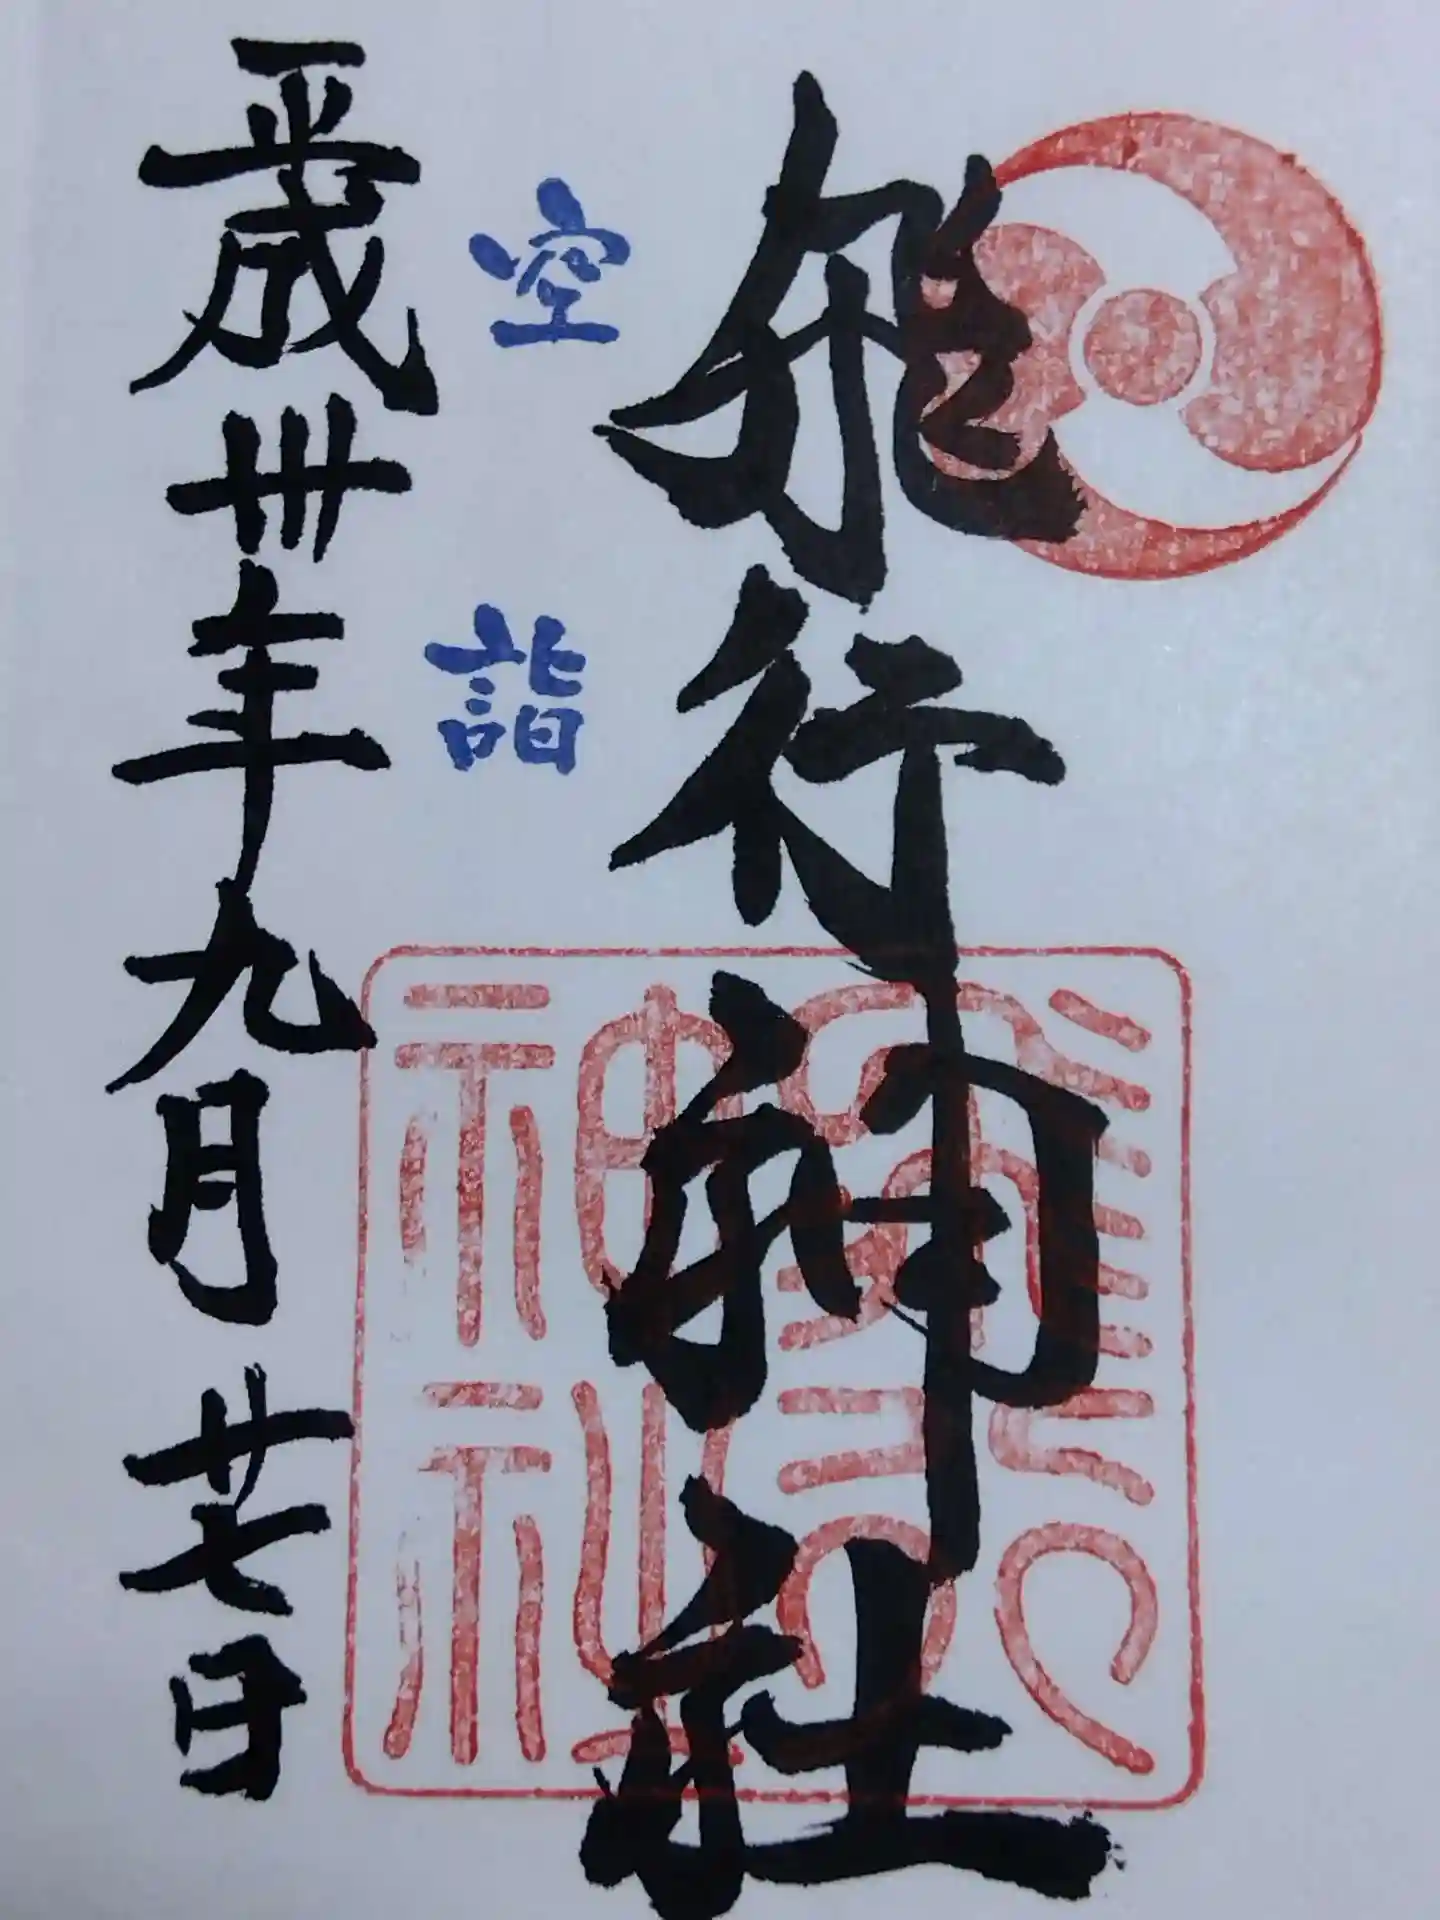 飛行神社
空詣
平成卅年九月廿七日
飛行神社